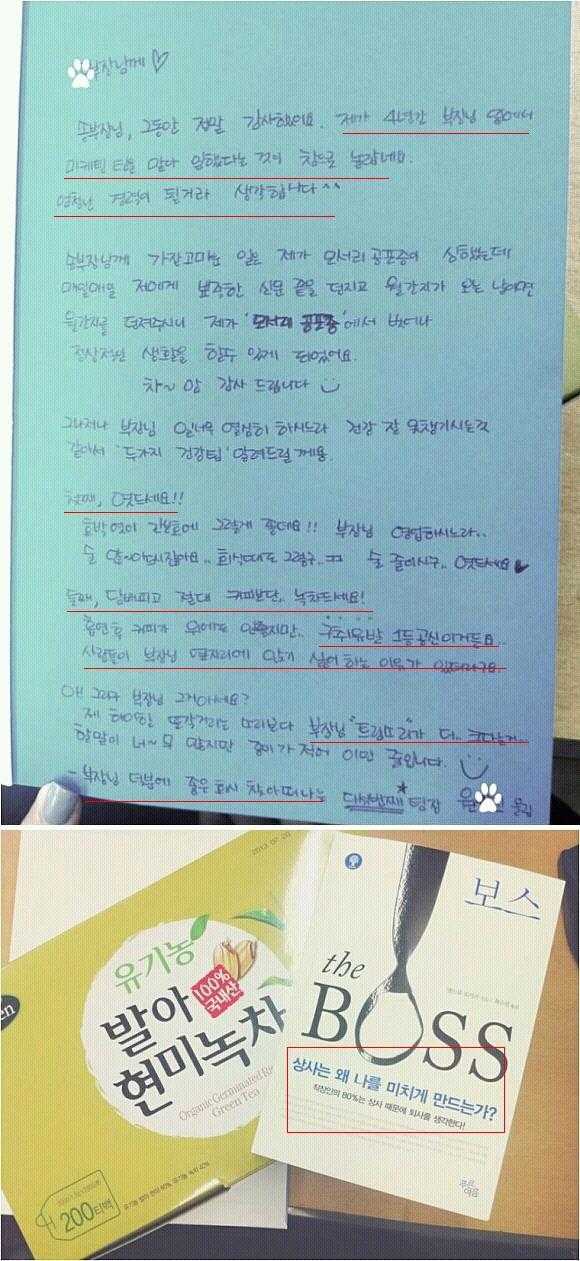 부장님께♡
송부장님, 그동안 정말 감사했어요. 제가 4년간 부장님 옆에서
마케팅 팀을 맡아 일했다는 것이 참으로 놀랍네요.
엄청난 경력이 될거라 생각합니다^^
송부장님께 가장고마운 일은 제가 모서리 공포증이 심했는데
매일매일 저에게 뾰족한 신문 끝을 던지고 월간지가 오는 날이면
월간지를 던져주시니 제가 '모서리 공포증'에서 벗어나
정상적인 생활을 할수 있게 되었어요.
차~ 암 감사 드립니다
그나저나 부장님 일너무 열심히 하시느라 건강 잘 못챙기시는것
같아서 '두가지 건강팁' 알려드릴께용.
첫째, 엿드세요!!
호박엿이 간보호에 그렇게 좋데요!! 부장님 영업하시느라..
술 많~이드시잖아요.. 회식때도 그렇구..ㅠㅠ 술 줄이시구.. 엿드세요♥
둘째, 담배피고 절대 커피보단.. 녹차드세요!
흡연후 커피가 위에도 안좋지만.. 구취유발 1등공신이거든요..
사람들이 부장님 옆자리에 앉기 싫어 하는 이유가 있더라구요.
아! 그리구 부장님 그거아세요?
제 하이힐 또각거리는 소리보다 부장님 "트림소리"가 더.. 크다는거..
할말이 너~무 많지만 종이가 적어 이만 줄입니다.
- 부장님 덕분에 좋은 회사 찾아떠나는 다섯번째* 팀장 올림
2013.07.20
유기농
발아
현미녹차
100%
국내산
Organic Germinated Ri
Green Tea
200티백
보스
the
BOSS
상사는 왜 나를 미치게 만드는가?
직장인의 80%는 상사 때문에 퇴사를 생각한다!
푸른
여름